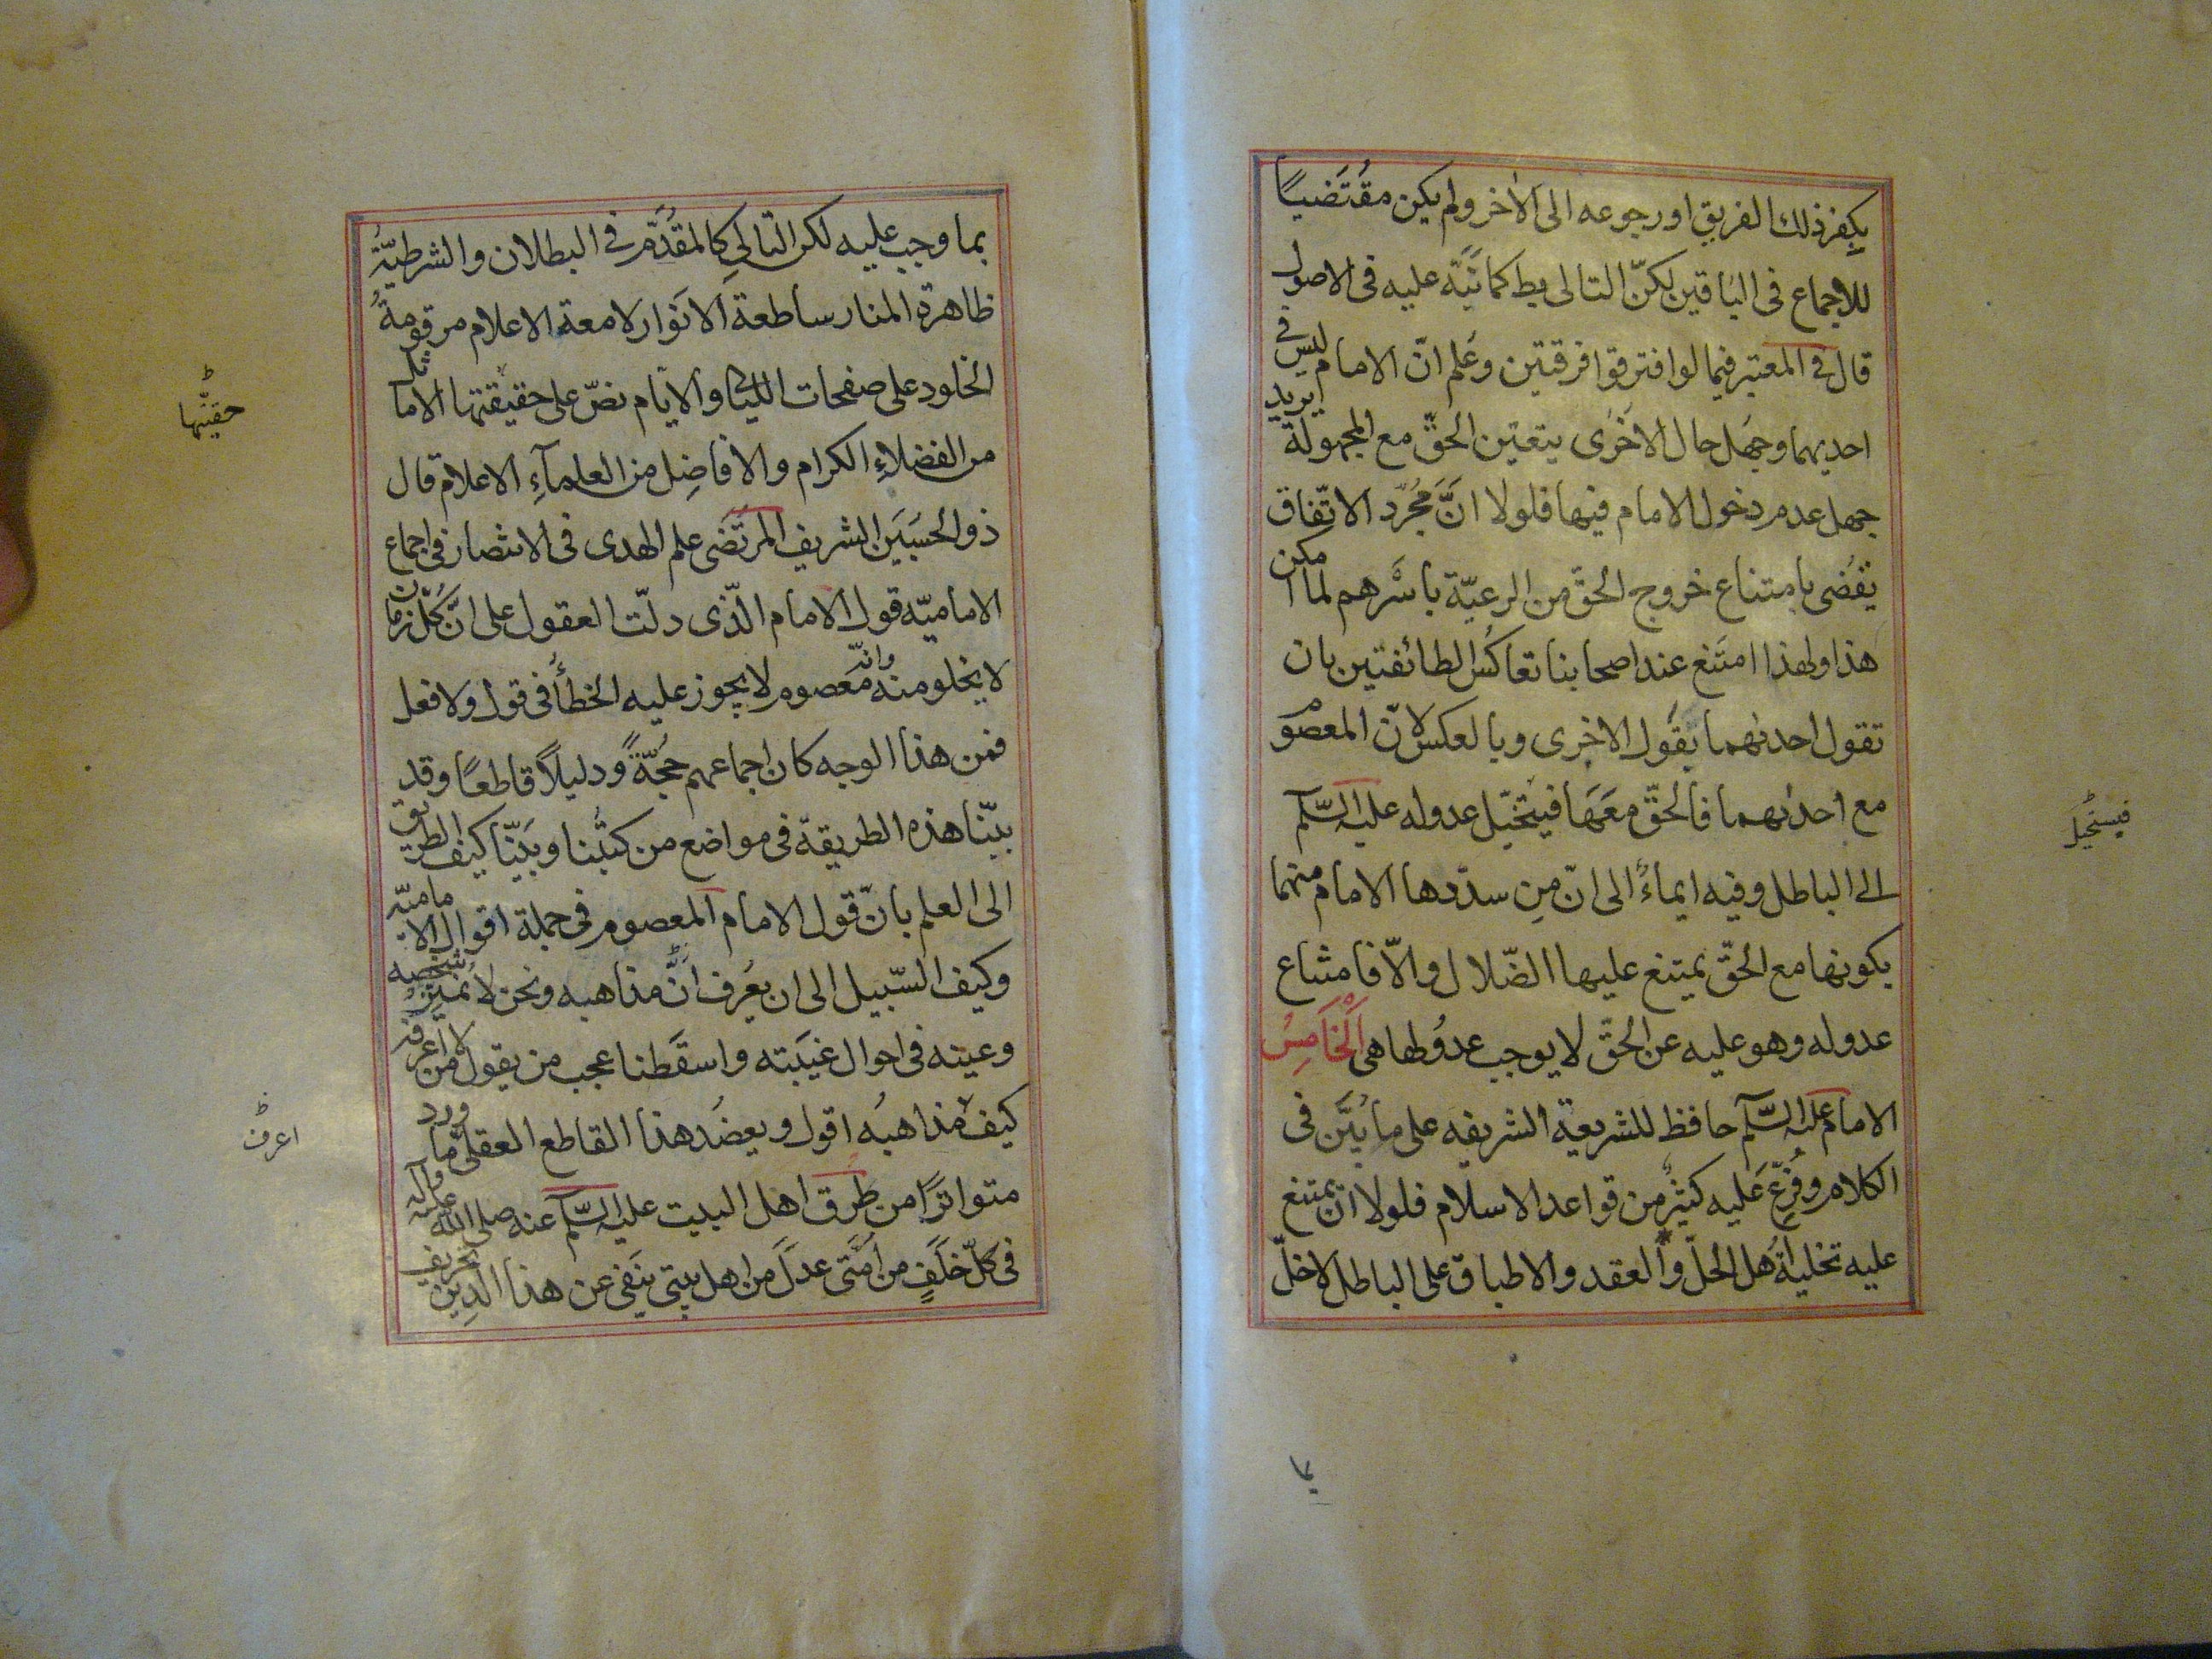 يكفر ذلك الفريق او رجوعه الى الاخر ولم يكن مقتضياً
للاجماع فى الباقين لكنّ التالى يط كما نبّه عليه فى الاصول
قال فى المعتبر فيما لو افترقوا فرقتين وعُلم انّ الامام ليس فى
احديهما وجهل حال الاخرى يتعيّن الحقّ مع المجهولة يريد
جهل عدم دخول الامام فيها فلولا انّ مجرّد الاتّفاق
يقضى بامتناع خروج الحقّ من الرعيّة باسرهم لما امكن
هذا ولهذا امتنع عند اصحابنا تعاكس الطائفتين بان
تقول احديهما بقول الاخرى وبالعكس لانّ المعصوم
مع احديهما فالحقّ معها فيتخيّل عدوله عليه السّلم
الى الباطل وفيه ايماءٌ الى انّ من سدّدها الامام منهما
بكونها مع الحقّ يمتنع عليها الضّلال والّا فامتناع
عدوله وهو عليه عن الحقّ لا يوجب عدولها هى الخامس
الامام عليه السّلم حافظ للشريعة الشريفه على ما بُيّن فى
الكلام وفُرّع عليه كثيرٌ من قواعد الاسلام فلولا ان يمتنع
عليه تخلية اهل الحلّ والعقد والاطباق على الباطل لاخلّ
فيستحيل
بما وجب عليه لكن التالى كالمقدّم فى البطلان والشرطيّةُ
ظاهرة المنار ساطعة الانوار لامعة الاعلام مرقومةُ
الخلود على صفحات الليالى والايام نصّ على حقيقتها الاماثل
من الفضلاءِ الكرام والافاضِل من العلمآءِ الاعلام قال
ذو الحسبين الشريف المرتضى علم الهدى فى الانتصار فى اجماع
الاماميّه قول الامام الّذى دلّت العقول على انّ كلّ زمان
لا يخلو منه وانّه معصوم لا يجوز عليه الخطأ فى قول ولا فعل
فمن هذا الوجه كان اجماعهم حجّةً ودليلاً قاطعًا وقد
بيّنا هذه الطريقة فى مواضع من كتبنا وبيّنا كيف الطريق
الى العلم بانّ قول الامام المعصوم فى جملة اقوال الاماميّه
وكيف السّبيل الى ان يعرف انّ مذاهبه ونحن لا نميّز شخصه
وعينه فى احوال غيبته واسقطنا عجب من يقول من لا اعرفه
كيف مذاهبُه اقول ويعضُد هذا القاطع العقلىّ ما ورد
متواترًا من طرق اهل البيت عليه السّلم عنه صلى الله عليه وآله
فى كلّ خلَفٍ من امّتى عدلٌ من اهل بيتى ينفى عن هذا الدين تحريف
حقيّتها
اعرف